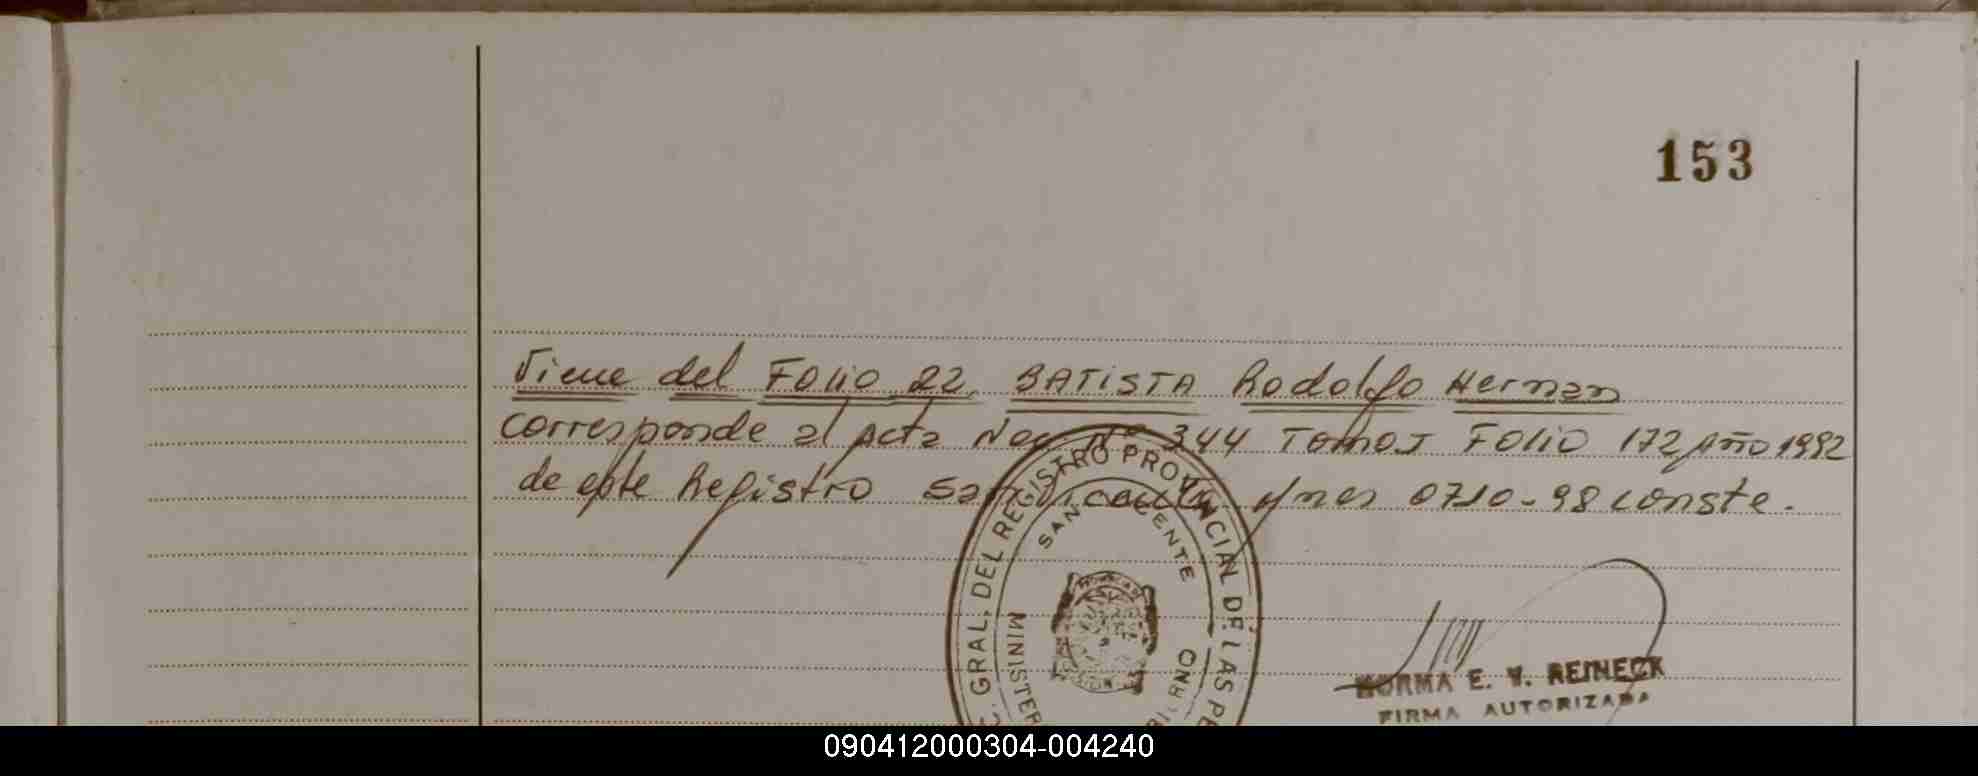 153
Viene del Folio 22. BATISTA Rodolfo Hernan
corresponde al Acta Nac Nº 344 Tomo I Folio 172 Año 1992
de este Registro San Vicente 0710-98 conste.
GRAL. DEL REGISTRO PROVINCIAL DE LAS
SAN VICENTE
NORMA E. V. REINECK
FIRMA AUTORIZADA
090412000304-004240